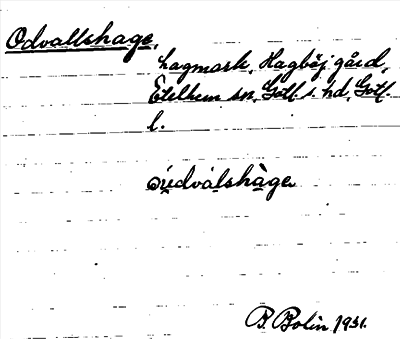 Odvallshage,
hagmark, Hagböj gård,
Etelhem sn, Gotl. s. hd, Gotl.
l.
òu̯dvàlshàge
B. Bolin 1931.